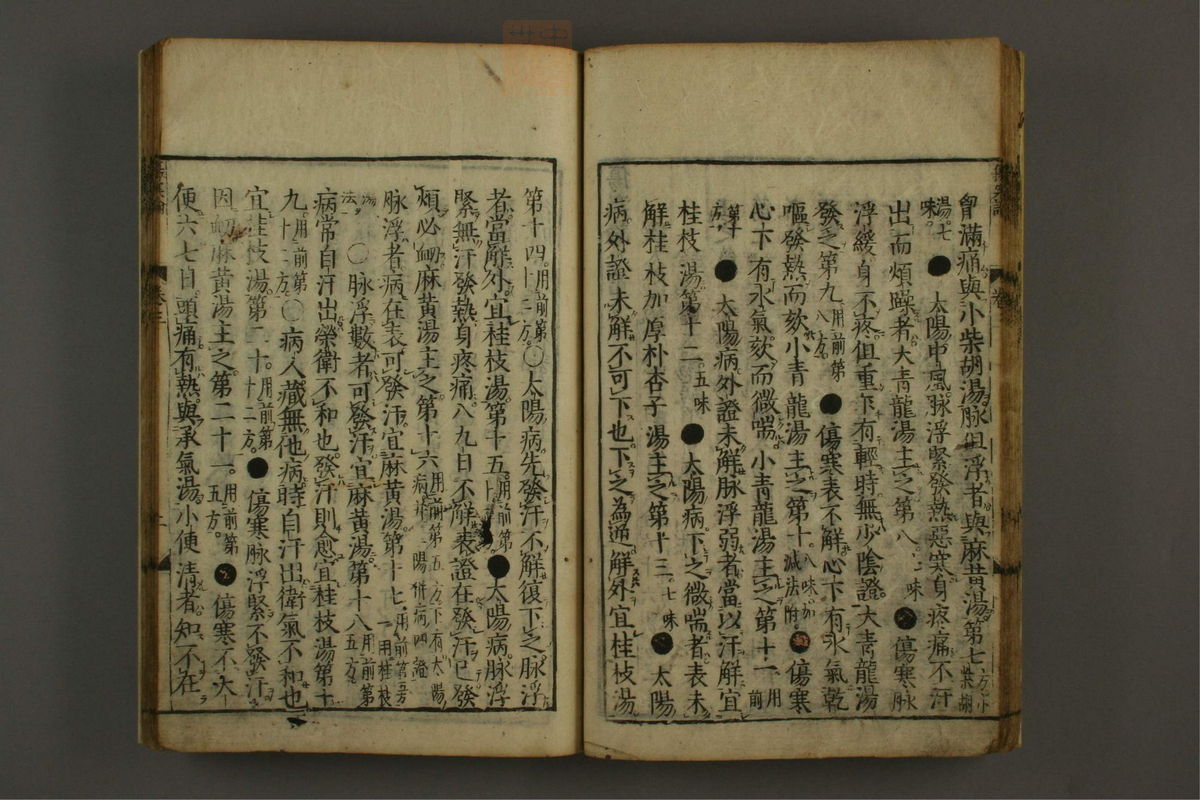 胷滿痛與小柴胡湯脉但浮者與麻黃湯第七用前第五方小柴胡
湯七味●太陽中風脉浮緊發熱惡寒身疼痛不汗
出而煩躁者大青龍湯主之第八七味●傷寒脉
浮緩身不疼但重乍有輕時無少陰證大青龍湯
發之第九用前第八方●傷寒表不解心下有水氣乾
嘔發熱而欬小青龍湯主之第十八味加減法附●傷寒
心下有水氣欬而微喘小青龍湯主之第十一用前
第十方●太陽病外證未解脉浮弱者當以汗解宜
桂枝湯第十二五味●太陽病下之微喘者表未
解桂枝加厚朴杏子湯主之第十三七味●太陽
病外證未解不可下也下之為逆解外宜桂枝湯
第十四用前第十二方○太陽病先發汗不解復下之脉浮
者當解外宜桂枝湯第十五用前第十二方●太陽病脉浮
緊無汗發熱身疼痛八九日不解表證在發汗已發
煩必衄麻黃湯主之第十六用前第五方下有太陽病并二陽併病四證
脉浮者病在表可發汗宜麻黃湯第十七用前第五方一用桂枝
湯法○脉浮數者可發汗宜麻黃湯第十八用前第五方
病常自汗出榮衛不和也發汗則愈宜桂枝湯第十
九用前第十二方○病人藏無他病時自汗出衛氣不和也
宜桂枝湯第二十用前第十二方●傷寒脉浮緊不發汗
因衄麻黃湯主之第二十一用前第五方●傷寒不大
便六七日頭痛有熱與承氣湯小便清者知不在